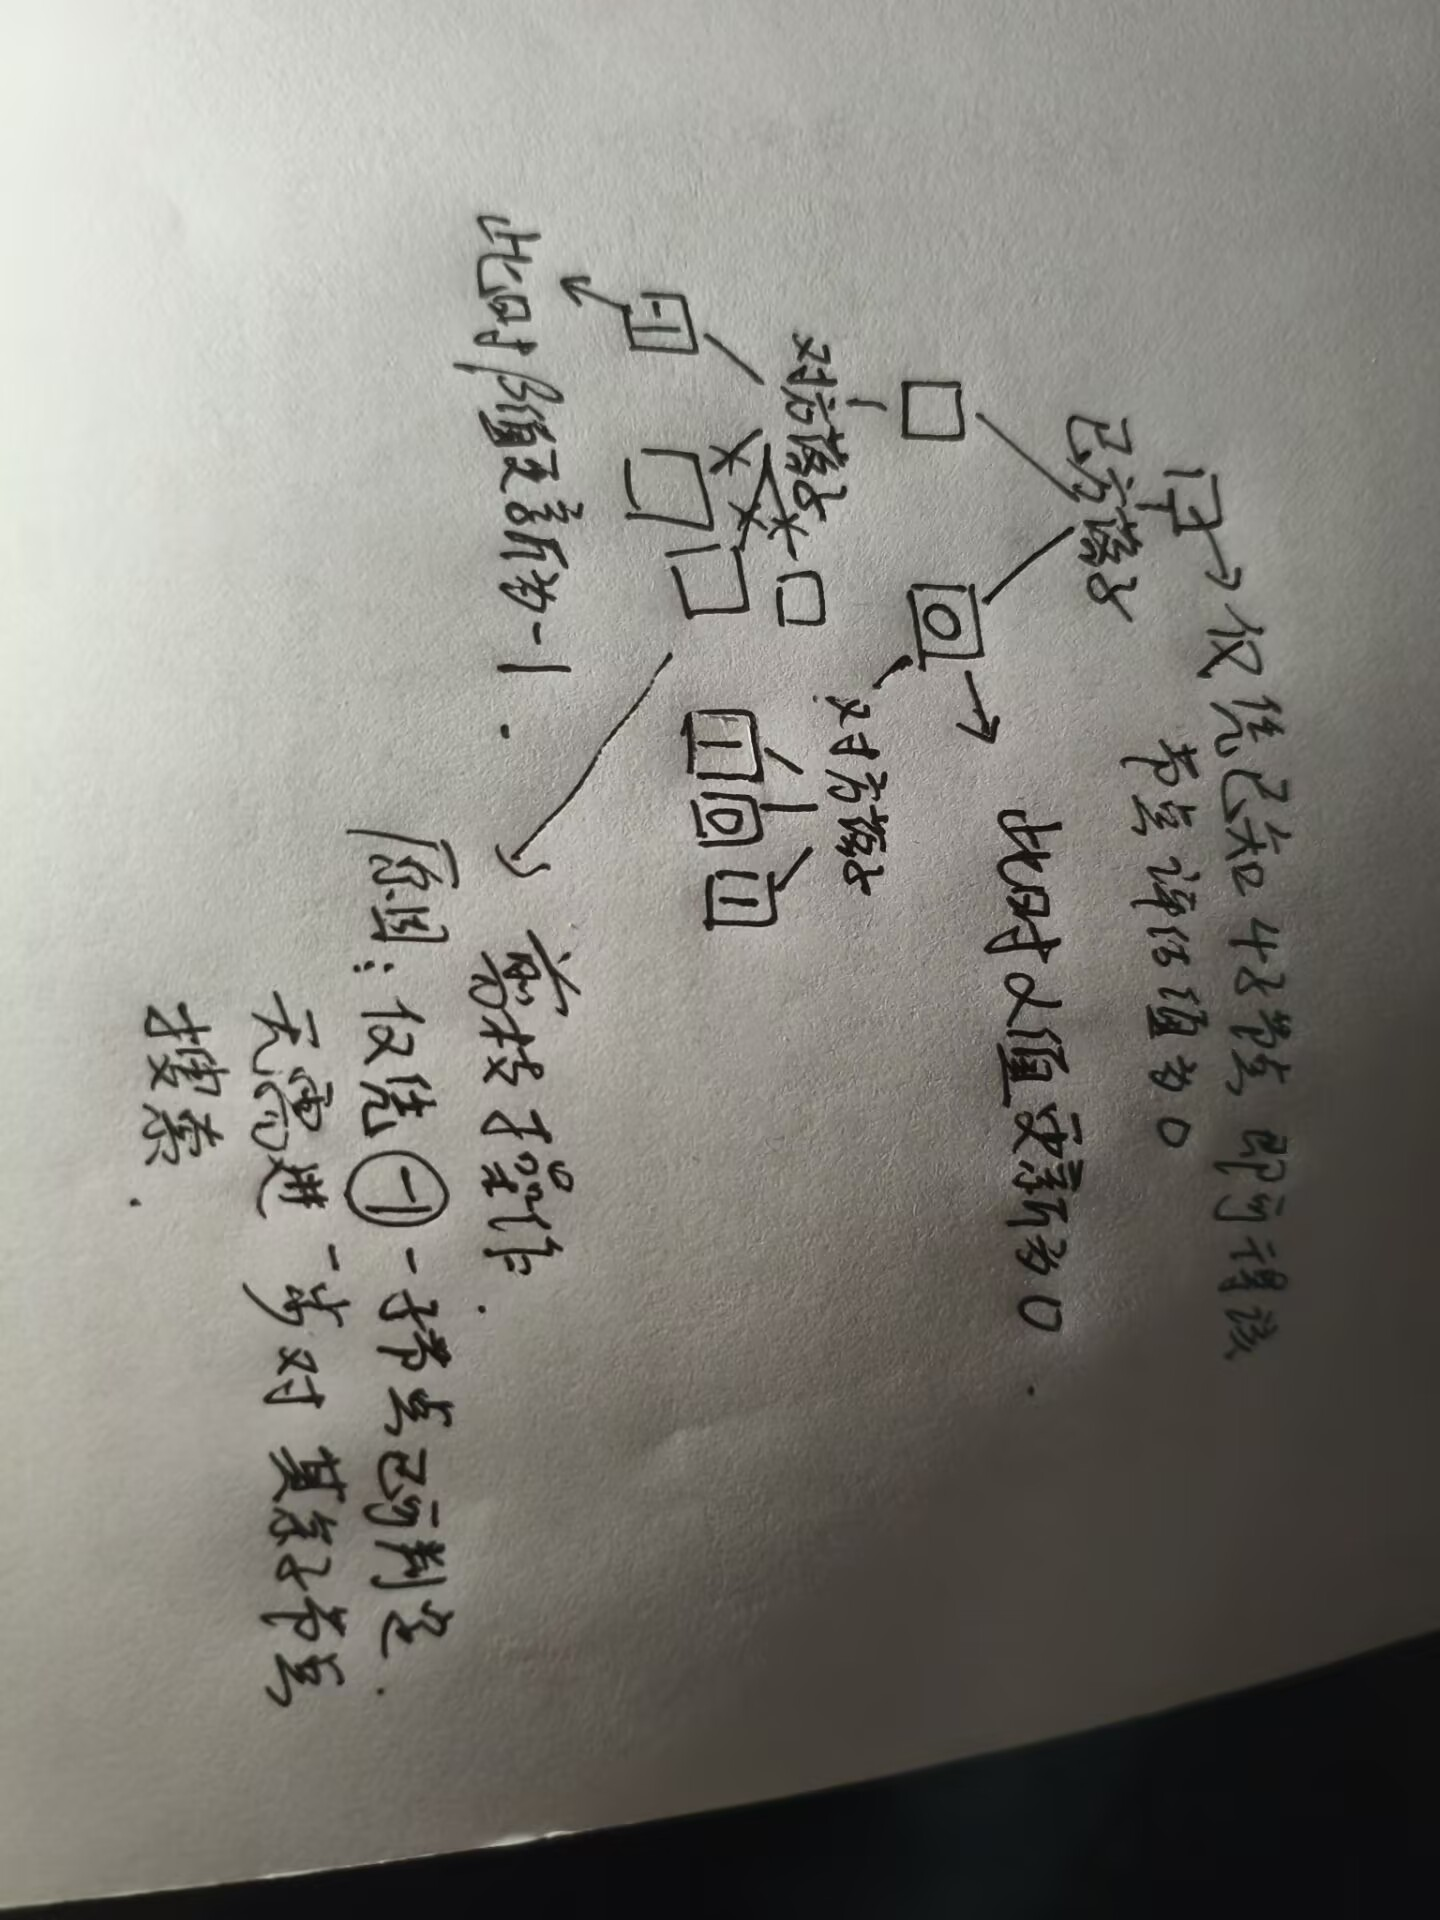 仅凭已知4子节点即可得该
节点评估值为0
己方落子
此时α值更新为0
0
对方落子
对方落子
1
0
1
-1
此时β值更新为-1.
剪枝操作.
原因:仅凭-1一子节点已可判定.
无需进一步对其余子节点
搜索.